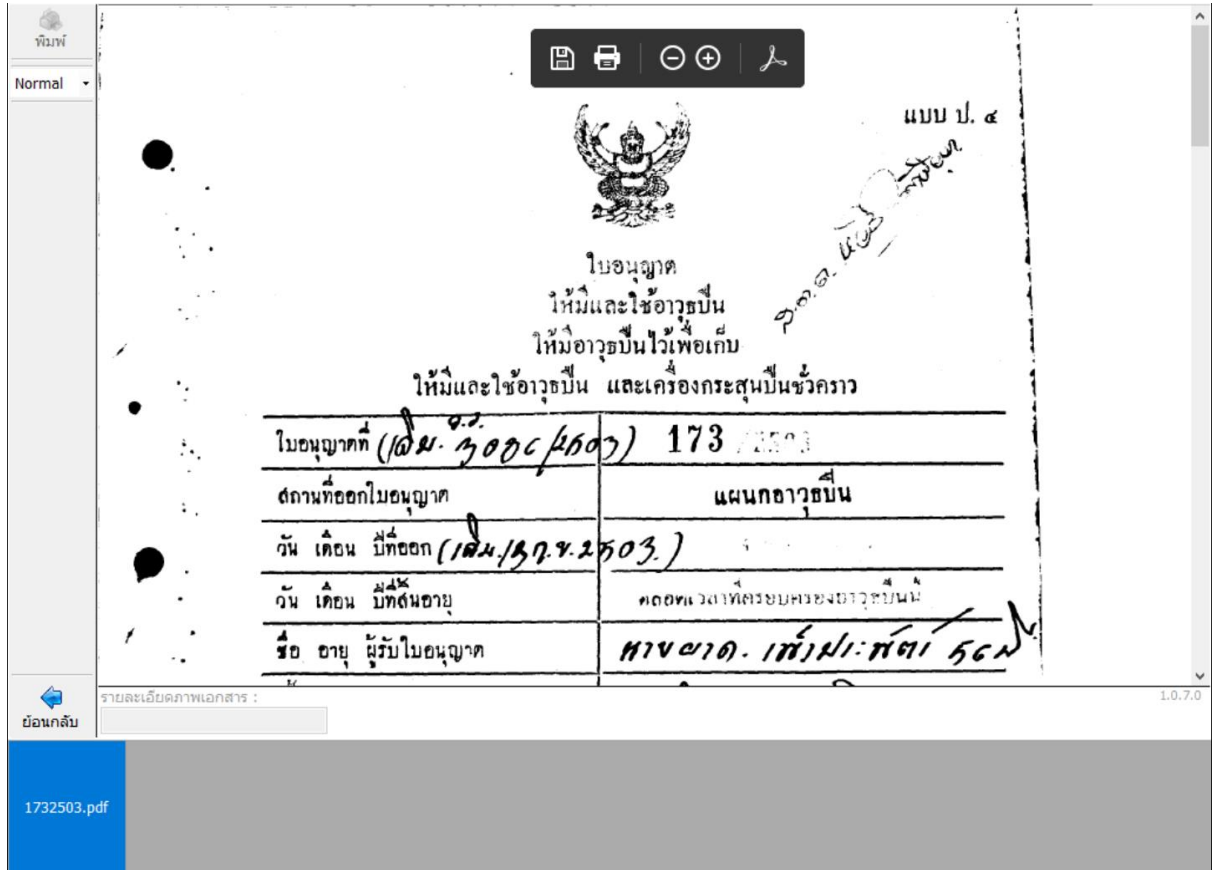 พิมพ์
Normal
แบบ ป. ๔
ใบอนุญาต
ให้มีและใช้อาวุธปืน
ให้มีอาวุธปืนไว้เพื่อเก็บ
ให้มีและใช้อาวุธปืน และเครื่องกระสุนปืนชั่วคราว
ใบอนุญาตที่ (เดิม. 173 /2503
สถานที่ออกใบอนุญาต แผนกอาวุธปืน
วัน เดือน ปีที่ออก (เดิม. ก.ย. 2503.)
วัน เดือน ปีที่สิ้นอายุ ตลอดเวลาที่ครอบครองอาวุธปืนนี้
ชื่อ อายุ ผู้รับใบอนุญาต
รายละเอียดภาพเอกสาร :
1.0.7.0
ย้อนกลับ
1732503.pdf